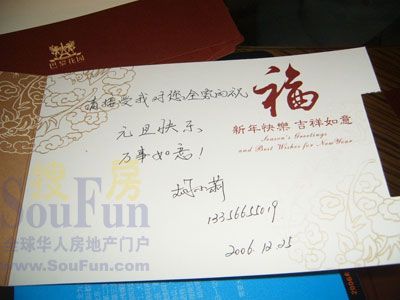 巴黎花园
请接受我对您全家的祝
元旦快乐
万事如意!
福
新年快樂 吉祥如意
Season's Greetings
and Best Wishes for New Year
胡小莉
13356655019
2006.12.25
搜房
SouFun
全球华人房地产门户
www.SouFun.com